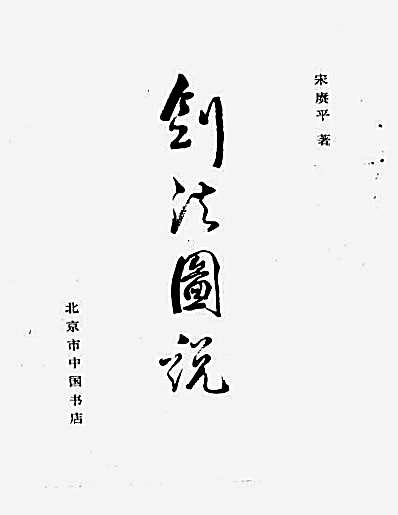 宋赓平 著
劍法圖説
北京市中国书店